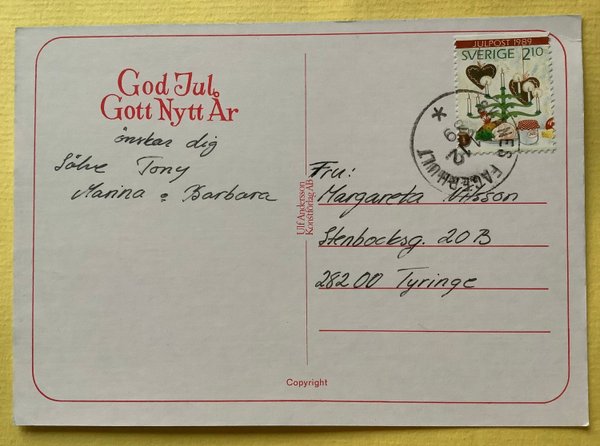 God Jul
Gott Nytt År
önskar dig
Sölve Tony
Marina o Barbara
Ulf Andersson
Konstförlag AB
JULPOST 1989
SVERIGE 2.10
FAGERHULT
Fru:
Margareta
Stenbocksg. 20 B
282 00 Tyringe
Copyright